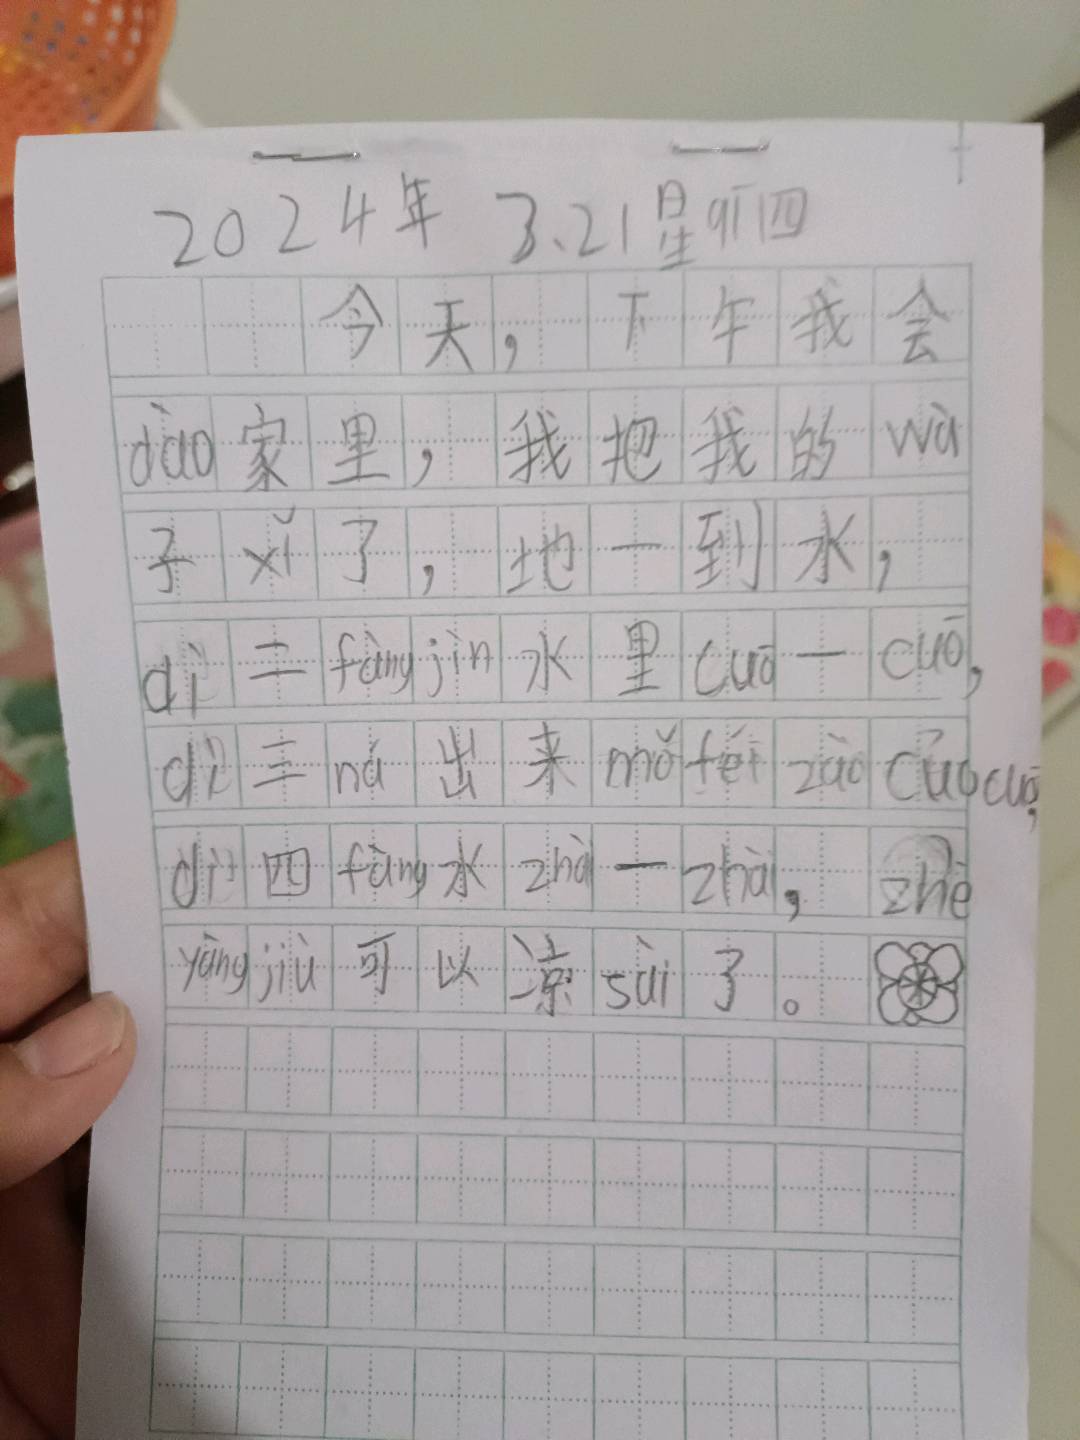 2024年 3.21星期四
今天，下午我会
dào家里，我把我的wà
子xǐ了，地一到水，
dì二fàngjìn水里cuō一cuō，
dì三ná出来mǒféizàocuōcuō，
dì四fàng水zhài一zhài，zhè
yàngjiù可以凉sài了。